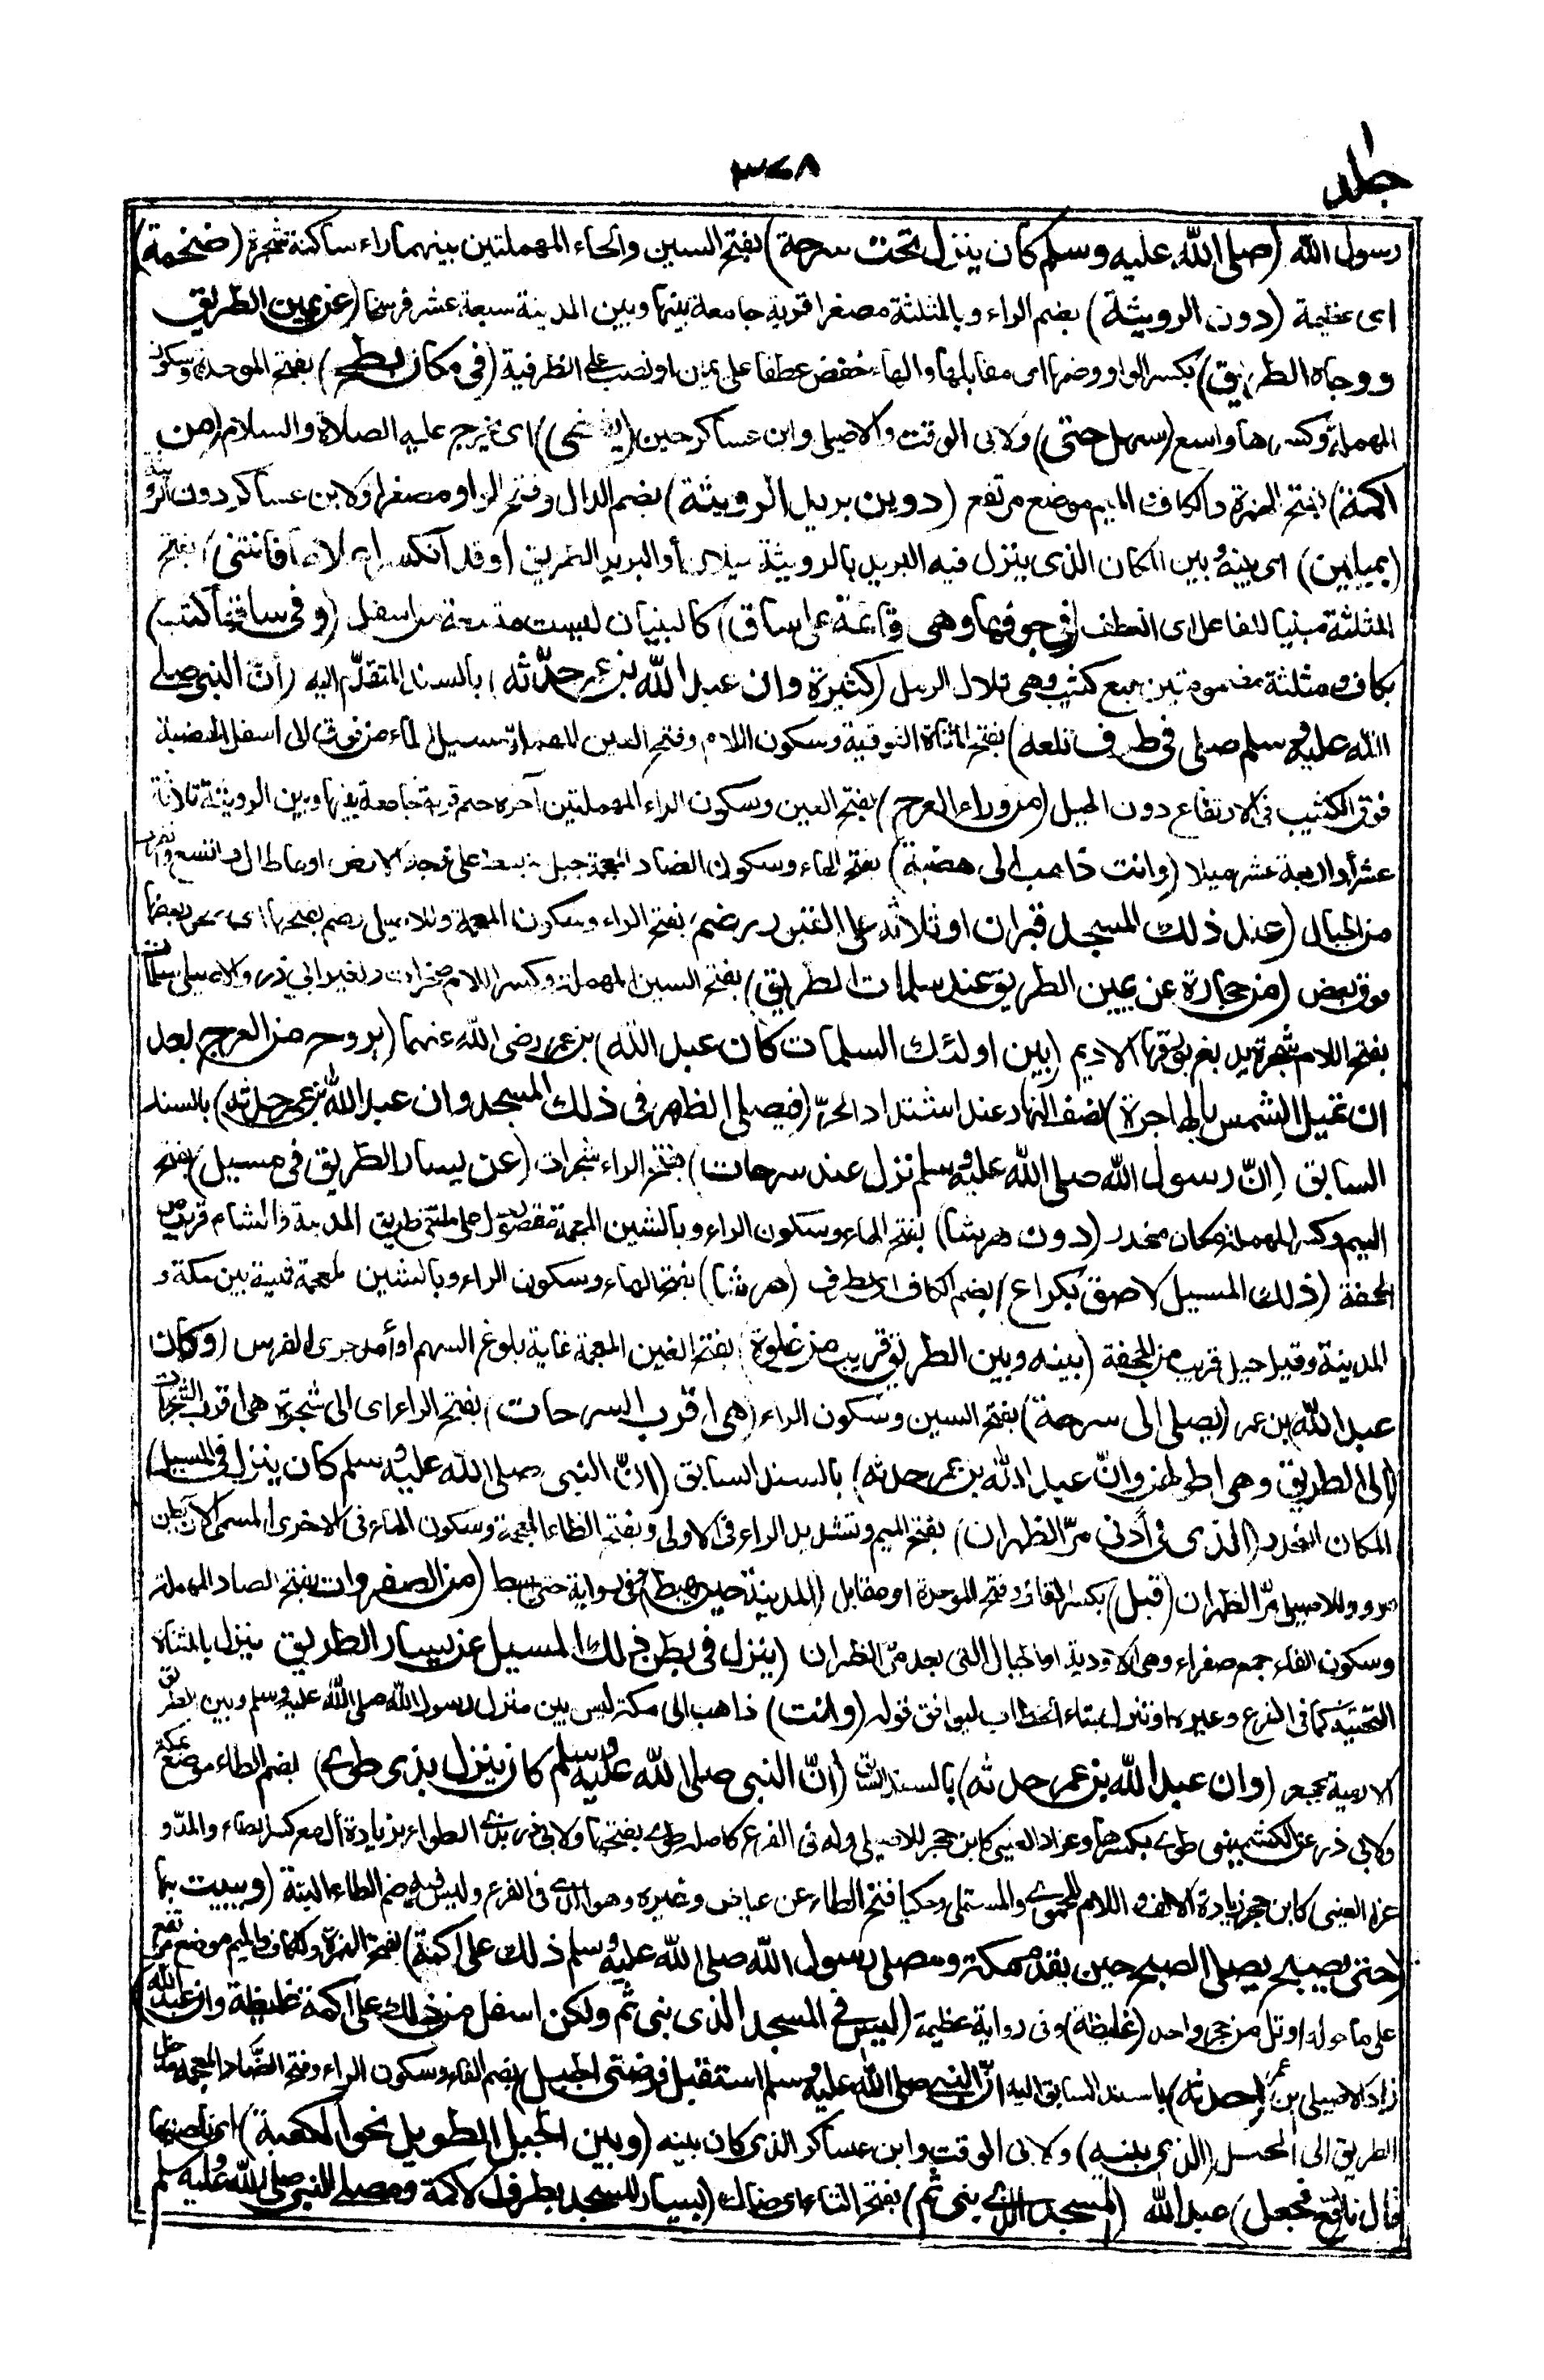 جلد ١
٣٧٨
رسول الله (صلى الله عليه وسلم كان ينزل تحت سرحة) بفتح السين والحاء المهملتين بينهما راء ساكنة شجرة (ضخمة)
اى عظيمة (دون الرويثة) بضم الراء وبالمثلثة مصغرا قرية جامعة بينها وبين المدينة سبعة عشر فرسخا (عن يمين الطريق
ووجاه الطريق) بكسر الواو وضمها اى مقابلها والهاء خفض عطفا على يمين او نصب على الظرفية (فى مكان بطح) بفتح الموحدة وسكون
المهملة وكسرها واسع (سهل حتى) ولابى الوقت والاصيلى وابن عساكر حين (يفضى) اى يخرج عليه الصلاة والسلام (من
اكمة) بفتح الهمزة والكاف والميم موضع مرتفع (دوين بريد الرويثة) بضم الدال وفتح الواو مصغرا ولابن عساكر دون الرويثة
(بميلين) اى بينه وبين المكان الذى ينزل فيه البريد بالرويثة ميلان أو البريد الطريق (وقد انكسر اعلاها فانثنى) بفتح
المثلثة مبنيا للفاعل اى انعطف (فى جوفها وهى قائمة على ساق) كالبنيان ليست متسعة من اسفل (وفى ساقها كثب)
بكاف ومثلثة مضمومتين جمع كثيب وهى تلال الرمل (كثيرة وان عبد الله بن عمر حدّثه) بالسند المتقدّم اليه (أنّ النبى صلى
الله عليه وسلم صلى فى طرف تلعة) بفتح المثناة الفوقية وسكون اللام وفتح العين المهملة مسيل الماء من فوق الى اسفل والهضبة
فوق الكثيب فى الارتفاع دون الجبل (من وراء العرج) بفتح العين وسكون الراء المهملتين آخره جيم قرية جامعة بينها وبين الرويثة ثلاثة
عشر أو اربعة عشر ميلا (وانت ذاهب الى هضبة) بفتح الهاء وسكون الضاد المعجمة جبل منبسط على وجه الارض او ما طال واتسع وانفرد
من الجبال (عند ذلك المسجد قبران او ثلاثة على القبور رضم) بفتح الراء وسكون المعجمة وللاصيلى رضم بفتحها اى صخور بعضها
فوق بعض (من حجارة عن يمين الطريق عند سلمات الطريق) بفتح السين المهملة وكسر اللام صخرات ولغير ابى ذر والاصيلى سلمات
بفتح اللام شجرة يدبغ بورقها الاديم (بين اولئك السلمات كان عبد الله) بن عمر رضى الله عنهما (يروح من العرج بعد
ان تميل الشمس بالهاجرة) نصف النهار عند اشتداد الحرّ (فيصلى الظهر فى ذلك المسجد وان عبد الله بن عمر حدثه) بالسند
السابق (انّ رسول الله صلى الله عليه وسلم نزل عند سرحات) بفتح الراء شجرات (عن يسار الطريق فى مسيل) بفتح
الميم وكسر المهملة مكان منحدر (دون هرشا) بفتح الهاء وسكون الراء وبالشين المعجمة مقصور جبل على ملتقى طريق المدينة والشام قريب من
الجحفة (ذلك المسيل لاصق بكراع) بضم الكاف اى بطرف (هرشا) بفتح الهاء وسكون الراء وبالشين المعجمة ثنية بين مكة و
المدينة وقيل جبل قريب من الجحفة (بينه وبين الطريق قريب من غلوة) بفتح الغين المعجمة غاية بلوغ السهم او أمد جرى الفرس (وكان
عبد الله) بن عمر (يصلى الى سرحة) بفتح السين وسكون الراء (هى اقرب السرحات) بفتح الراء اى الى شجرة هى اقرب الشجرات
(الى الطريق وهى اطولهن وانّ عبد الله بن عمر حدثه) بالسند السابق (انّ النبى صلى الله عليه وسلم كان ينزل فى المسيل)
المكان المنحدر (الذى فى أدنى مرّ الظهران) بفتح الميم وتشديد الراء فى الاولى وبفتح الظاء المعجمة وسكون الهاء فى الاخرى المسمى الآن بطن
مرو وللاصيلى مرّ الظهران (قبل) بكسر القاف وفتح الموحدة اى مقابل (المدينة حين يهبط) وفى رواية حتى يهبط (من الصفراوات) بفتح الصاد المهملة
وسكون الفاء جمع صفراء وهى الاودية او الجبال التى بعد مرّ الظهران (ينزل فى بطن ذلك المسيل عن يسار الطريق) ينزل بالمثناة
التحتية كما فى الفرع وغيره او تنزل بتاء الخطاب ليوافق قوله (وانت) ذاهب الى مكة ليس بين منزل رسول الله صلى الله عليه وسلم وبين الطريق
الا رمية بحجر (وان عبد الله بن عمر حدثه) بالسند السابق (انّ النبى صلى الله عليه وسلم كان ينزل بذى طوى) بضم الطاء موضع بمكة
ولابى ذر عن الكشميهنى طوى بكسرها وعزاه العينى كابن حجر للاصيلى وله فى الفرع كاصله طوى بفتحها ولابى ذر بذى الطواء بزيادة أل مع كسر الطاء والمدّ و
عزا العينى كابن حجر زيادة الالف واللام للحموى والمستملى وحكيا فتح الطاء عن عياض وغيره وهو الذى فى الفرع وليس فيه ضم الطاء البتة (ويبيت بها
حتى يصبح يصلى الصبح حين يقدم مكة ومصلى رسول الله صلى الله عليه وسلم ذلك على اكمة) بفتح الهمزة والكاف والميم موضع مرتفع
على ما حوله او تل من حجر واحد (غليظة) وفى رواية عظيمة (ليس فى المسجد الذى بنى ثم ولكن اسفل من ذلك على اكمة غليظة وان عبد الله)
زاد الاصيلى بن عمر (حدثه) بالسند السابق اليه (انّ النبى صلى الله عليه وسلم استقبل فرضتى الجبل) بضم الفاء وسكون الراء وفتح الضاد المعجمة مدخل
الطريق الى الجبل (الذى بينه) ولابى الوقت وابن عساكر الذى كان بينه (وبين الجبل الطويل نحو الكعبة) اى ناحيتها
قال نافع (فجعل) عبد الله (المسجد الذى بنى ثم) بفتح الثاء اى هناك (يسار المسجد بطرف الاكمة ومصلى النبى صلى الله عليه وسلم